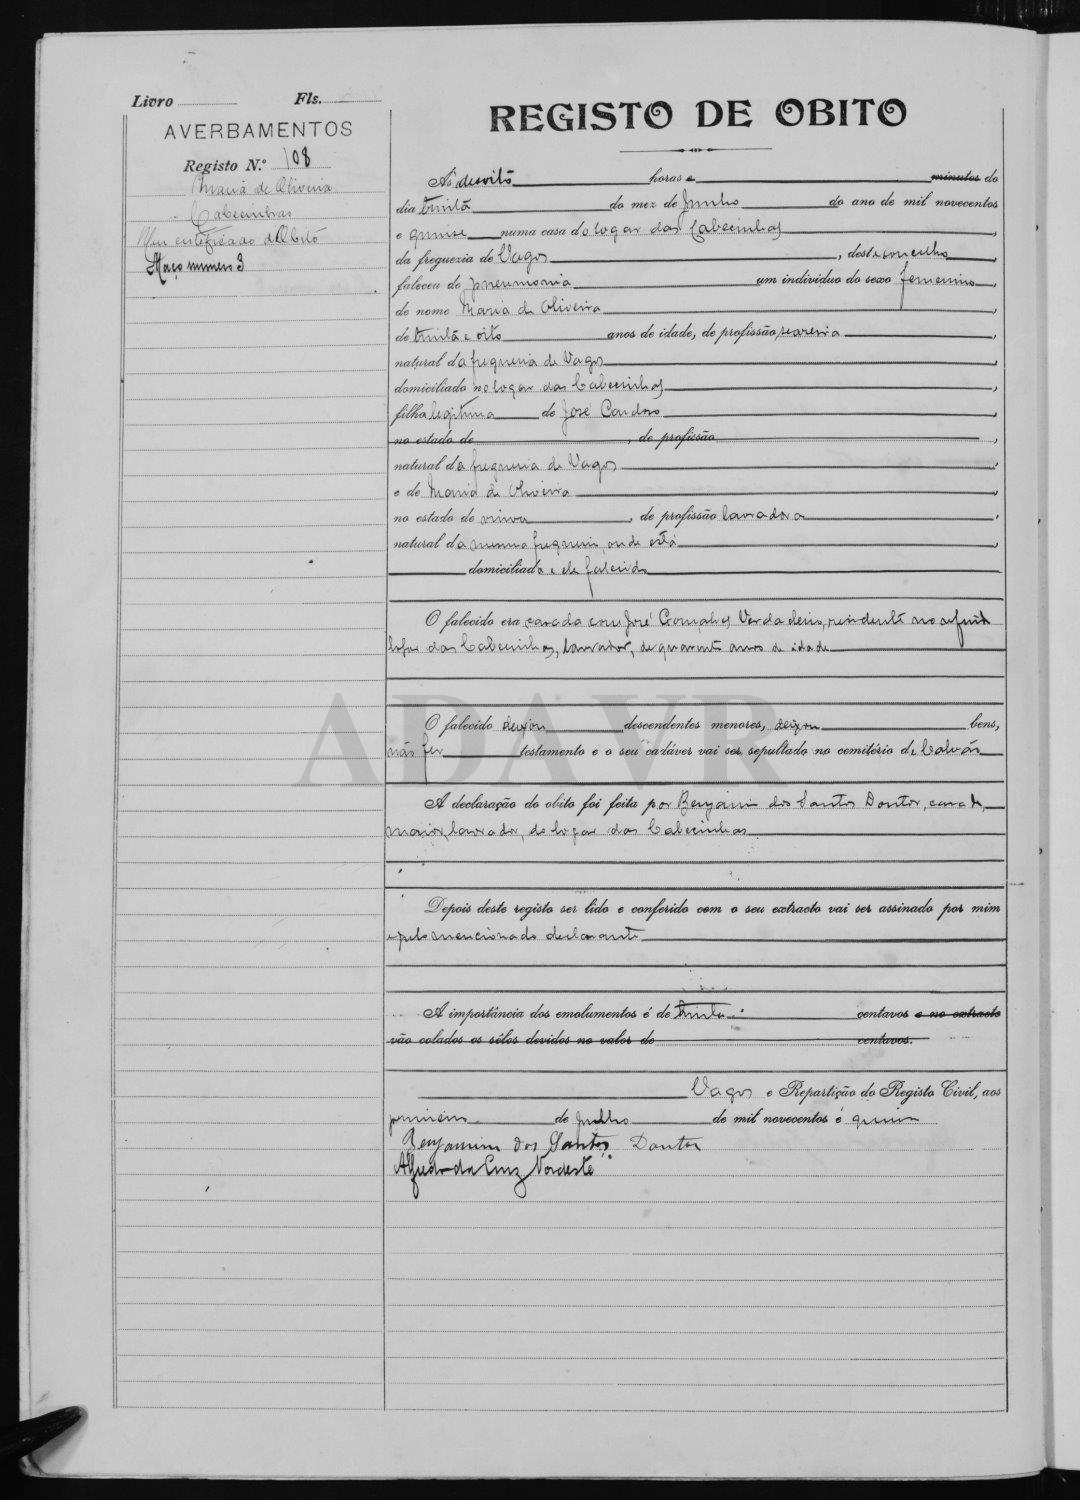 Livro Fls.
AVERBAMENTOS
Registo N.º 108
Maria de Oliveira
Cabecinhas
Um certificado d'Obito
Maço numero 3
REGISTO DE OBITO
Ás desoito horas e minutos do
dia trinta do mez de Junho do ano de mil novecentos
e quinse numa casa do logar das Cabecinhas,
da freguezia de Vagos, deste concelho,
faleceu de pneumonia um individuo do sexo femenino,
de nome Maria de Oliveira,
de trinta e oito anos de idade, de profissão seareira,
natural da freguesia de Vagos,
domiciliado no logar das Cabecinhas,
filha legitima de José Cardoso,
no estado de , de profissão ,
natural da freguesia de Vagos,
e de Maria de Oliveira,
no estado de viuva, de profissão lavradora,
natural da mesma freguesia, onde está,
domiciliada e ele falecido
O falecido era casada com José Gonçalves Verdadeiro, residente no referido
logar das Cabecinhas, lavrador, de quarenta anos de idade
O falecido deixou descendentes menores, deixou bens,
não fez testamento e o seu cadáver vai ser sepultado no cemitério de Calvão
ADAVR
A declaração do obito foi feita por Benjamim dos Santos Doutor, casado,
maior, lavrador, do logar das Cabecinhas
Depois deste registo ser lido e conferido com o seu extracto vai ser assinado por mim
e pelo mencionado declarante
A importância dos emolumentos é de trinta centavos e no extracto
vão colados os sêlos devidos no valor de centavos.
Vagos e Repartição do Registo Civil, aos
primeiro de Julho de mil novecentos e quinse
Benjamim dos Santos Doutor
Alfredo da Cruz Nordeste